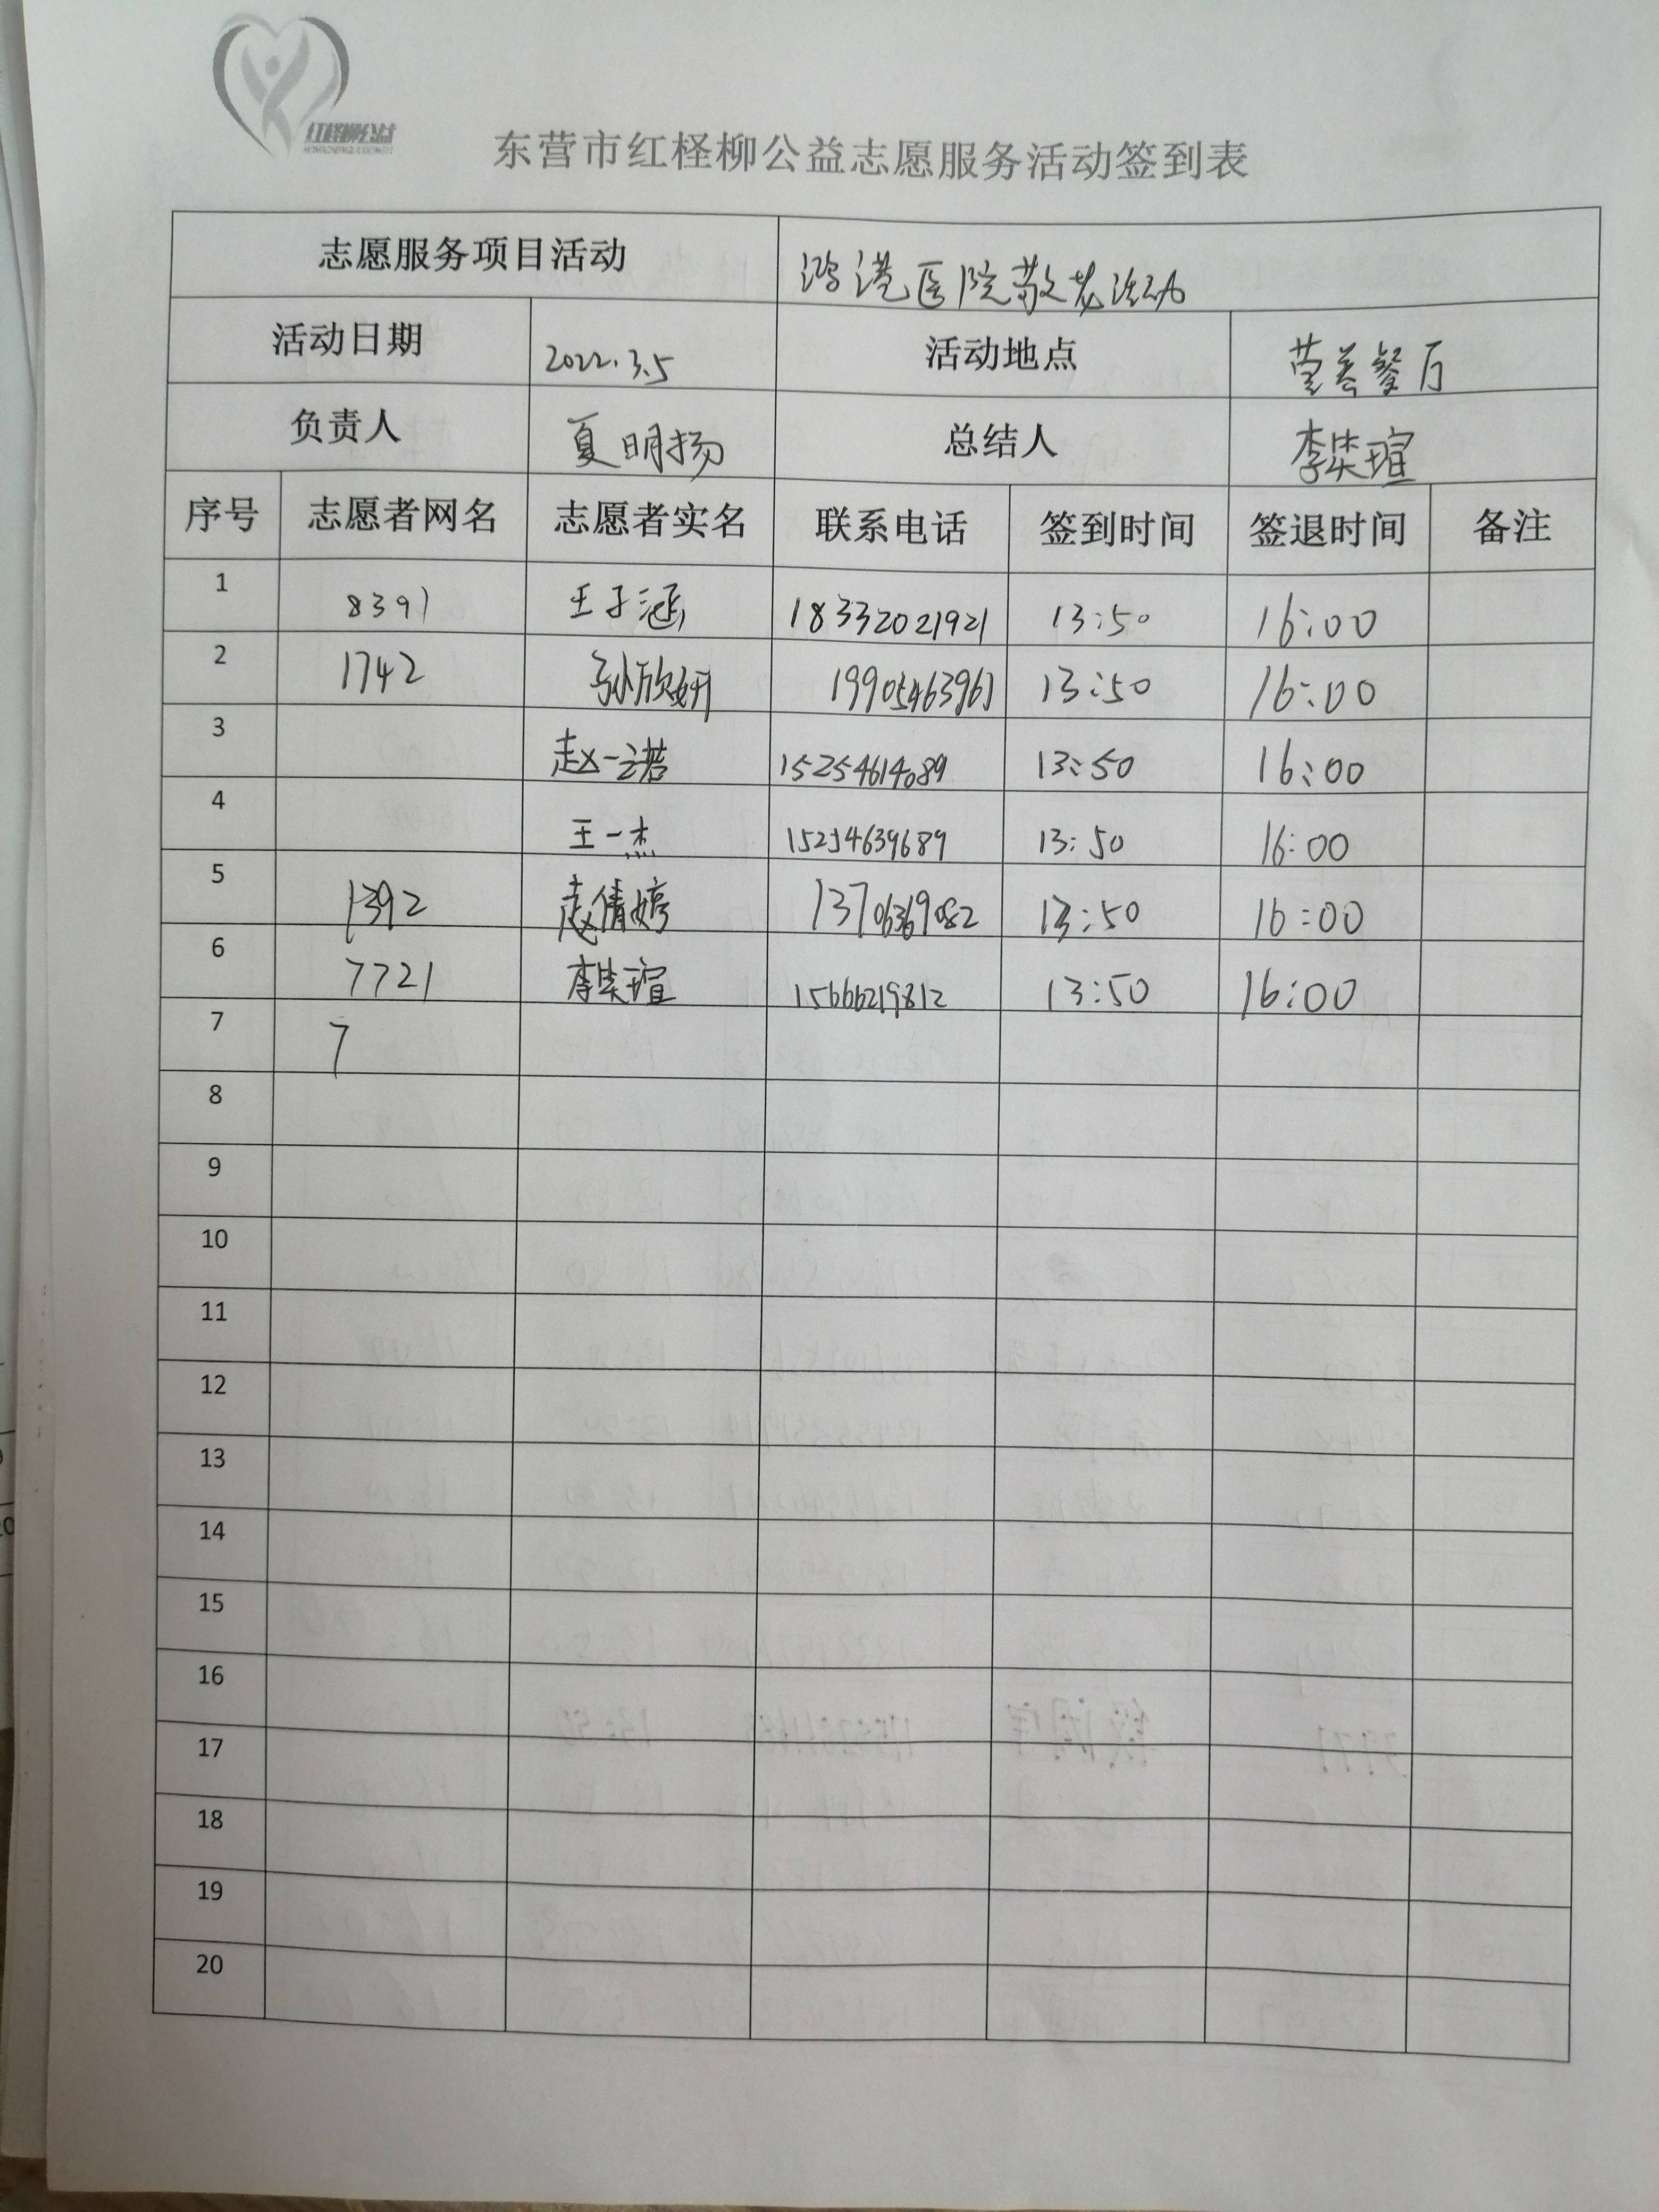 红柽柳公益
东营市红柽柳公益志愿服务活动签到表
志愿服务项目活动 鸿港医院敬老活动
活动日期 2022.3.5 活动地点 营养餐厅
负责人 夏明扬 总结人 李奕瑄
序号 志愿者网名 志愿者实名 联系电话 签到时间 签退时间 备注
1 8391 王子涵 18332021921 13:50 16:00
2 1742 孙欣妍 19905463961 13:50 16:00
3 赵一诺 15254614089 13:50 16:00
4 王一杰 15254639689 13:50 16:00
5 1392 赵倩婷 13706369082 13:50 16:00
6 7721 李奕瑄 15666219812 13:50 16:00
7 7
8
9
10
11
12
13
14
15
16
17
18
19
20